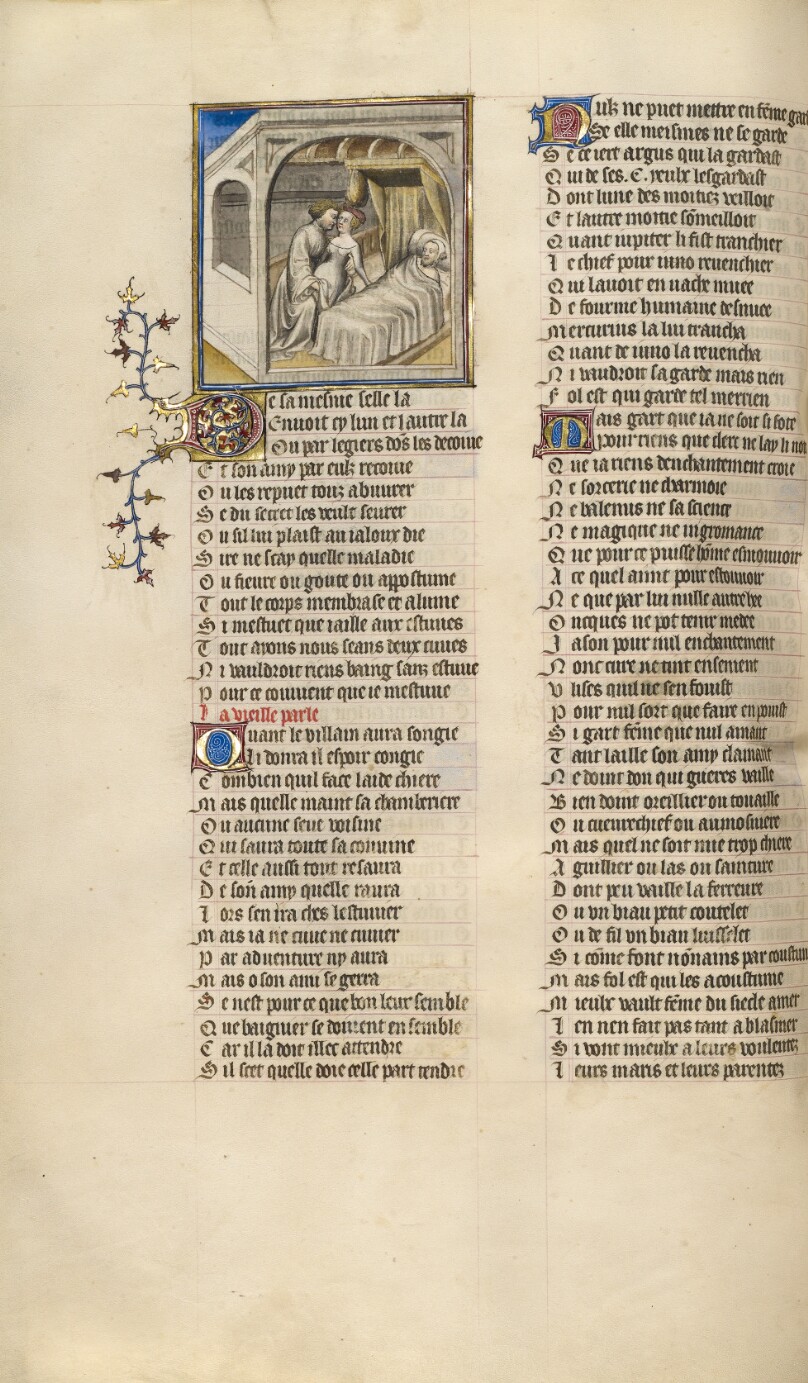 De sa mesme selle la
Enuoit cy lun et lautre la
Ou par legiers dõs les decoiue
Et son amy par eulx recoiue
Ou les repuet touz abuurer
Se du secret les veult seurer
Ou sil lui plaist au ialoux die
Sire ne scay quelle maladie
Ou fieure ou goute ou appostume
Tout le corps membrase et alume
Si mestuet que iaille aux estuues
Tout ayons nous ceans deux cuues
Ni vauldroit riens baing sanz estuue
Pour ce conuient que ie mestuue
La vieille parle
Quant le villain aura songie
Li donra il espoir congie
Combien quil face laide chiere
Mais quelle maint sa chamberiere
Ou aucune seue voisine
Qui saura toute sa conuine
Et celle aussi tout resaura
De son amy quelle raura
Lors sen ira ches lestuuier
Mais ia ne cuue ne cuuier
Par aduenture ny aura
Mais o son ami se gerra
Se nest pour ce que bon leur semble
Que baignier se doiuent ensemble
Car il la doit illec attendre
Sil scet quelle doie celle part tendre
Nulz ne puet mettre en fẽme
Se elle meismes ne se garde
Se ce iert argus qui la gardast
Qui de ses .C. yeulx lesgardast
Dont lune des moitiez veilloit
Et lautre moitie sõmeilloit
Quant iupiter li fist tranchier
Le chief pour iuno reuenchier
Qui lauoit en vache muee
De fourme humaine desnuee
Mercurius la lui trancha
Quant de iuno la reuencha
Ni vaudroit sa garde mais rien
Fol est qui garde tel merrien
Mais gart que ia ne soit si sote
Pour riens que clerc ne lay li
Que ia riens denchantement croie
Ne sorcerie ne charmoie
Ne balenus ne sa science
Ne magique ne nigromance
Que pour ce puisse hõme esmouuoir
A ce quel aint pour estouuoir
Ne que par lui nulle autre hee
Oncques ne pot tenir medee
Jason pour nul enchantement
Nonc circe ne tint ensement
Vlixes quil ne sen fouist
Pour nul sort que faire en
Si gart fẽme que nul amant
Tant laille son amy clamant
Ne doint don qui gueres vaille
Bien doint oreillier ou touaille
Ou cueurechief ou aumosniere
Mais quel ne soit mie trop chiere
Aguillier ou las ou sainture
Dont peu vaille la ferreure
Ou vn biau petit coutelet
Ou de fil vn biau
Si cõme font nõnains par
Mais fol est qui les acoustume
Mieulx vault fẽme du siecle amer
Len nen fait pas tant a blasmer
Si vont mieulx a leurs voulentez
Leurs maris et leurs parentez